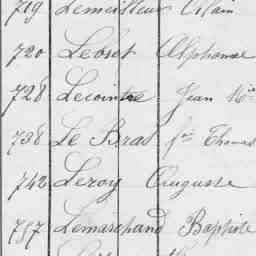 719 Lemeilleur Alain
720 Lebret Alphonse
728 Lecointre Jean Mie
738 Le Bras fois Thomas
742 Leroy Auguste
757 Lemarchand Baptiste